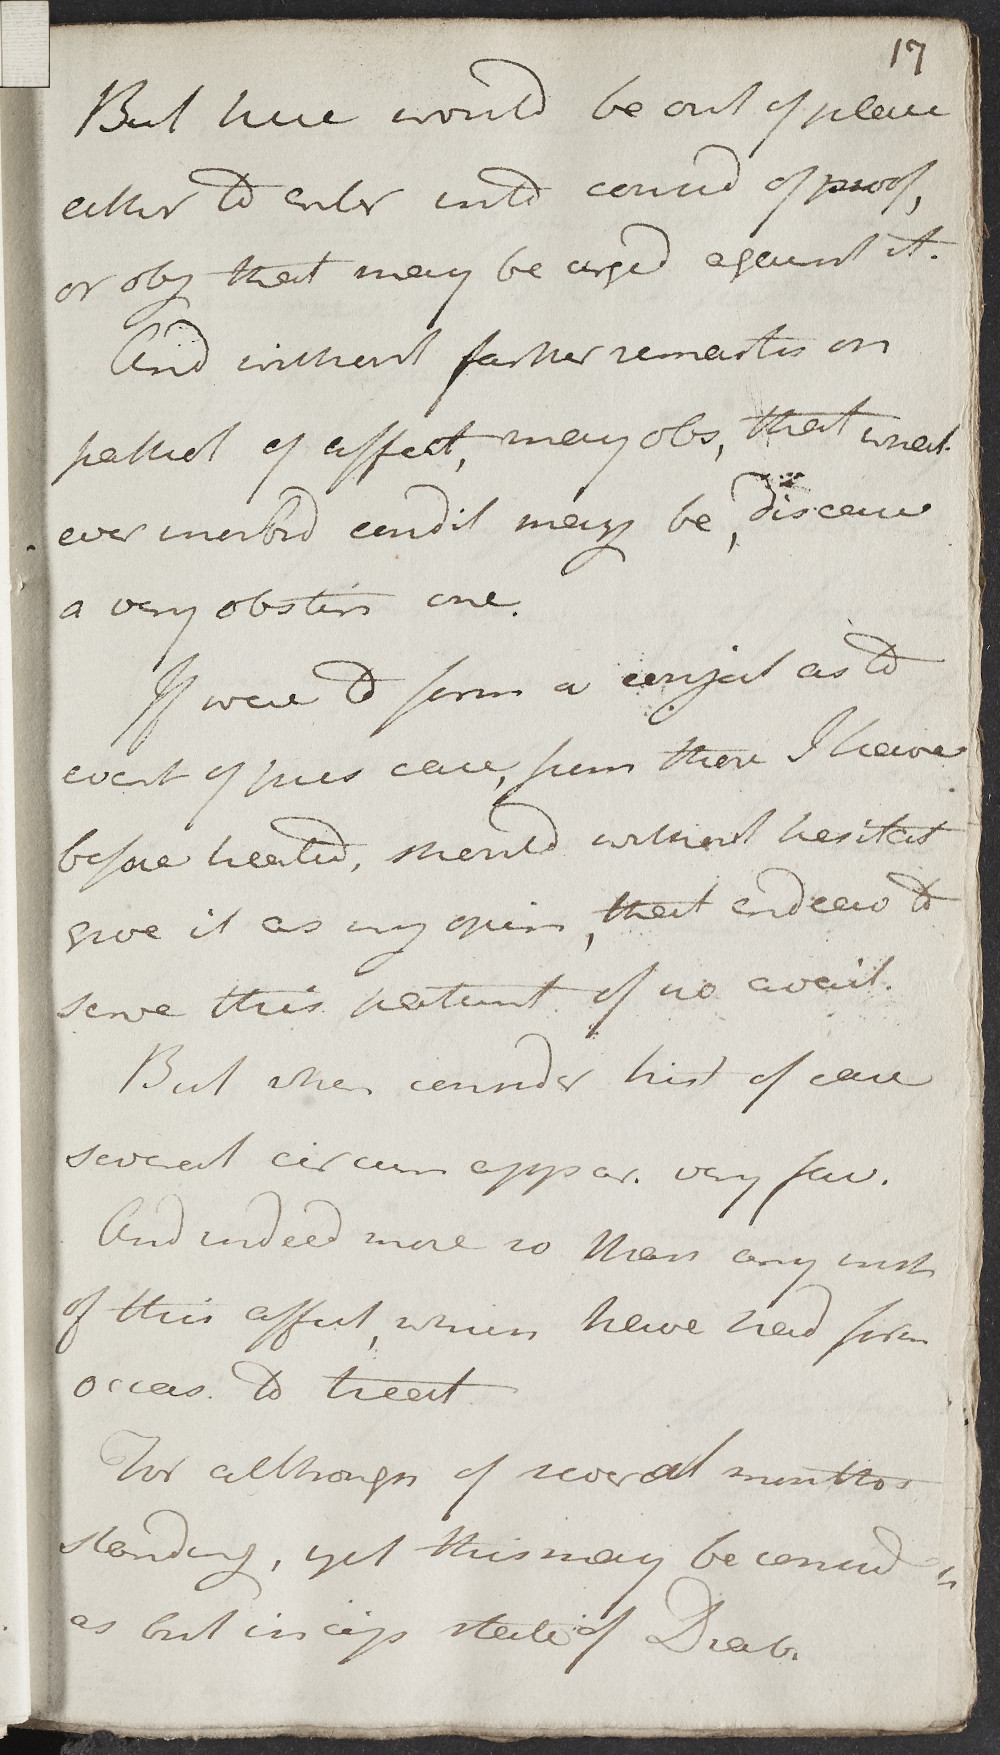 17
But here would be out of place
either to enter into consid of proof,
or obj that may be urged against it.
And without farther remarks on
pathol of affect, may obs, that what
ever morbid condit may be, disease
a very obstin one.
If were to form a conjet as to
event of pres case, from those I have
before treated, should without hesitat
give it as my opin, that endeav to
serve this patient of no avail.
But when consider hist of case
several circum appar. very fav.
And indeed more so than any inst
of this affect, which have had form
occas. to treat
For although of several months
standing, yet this may be consid
as but incip state of Diab.